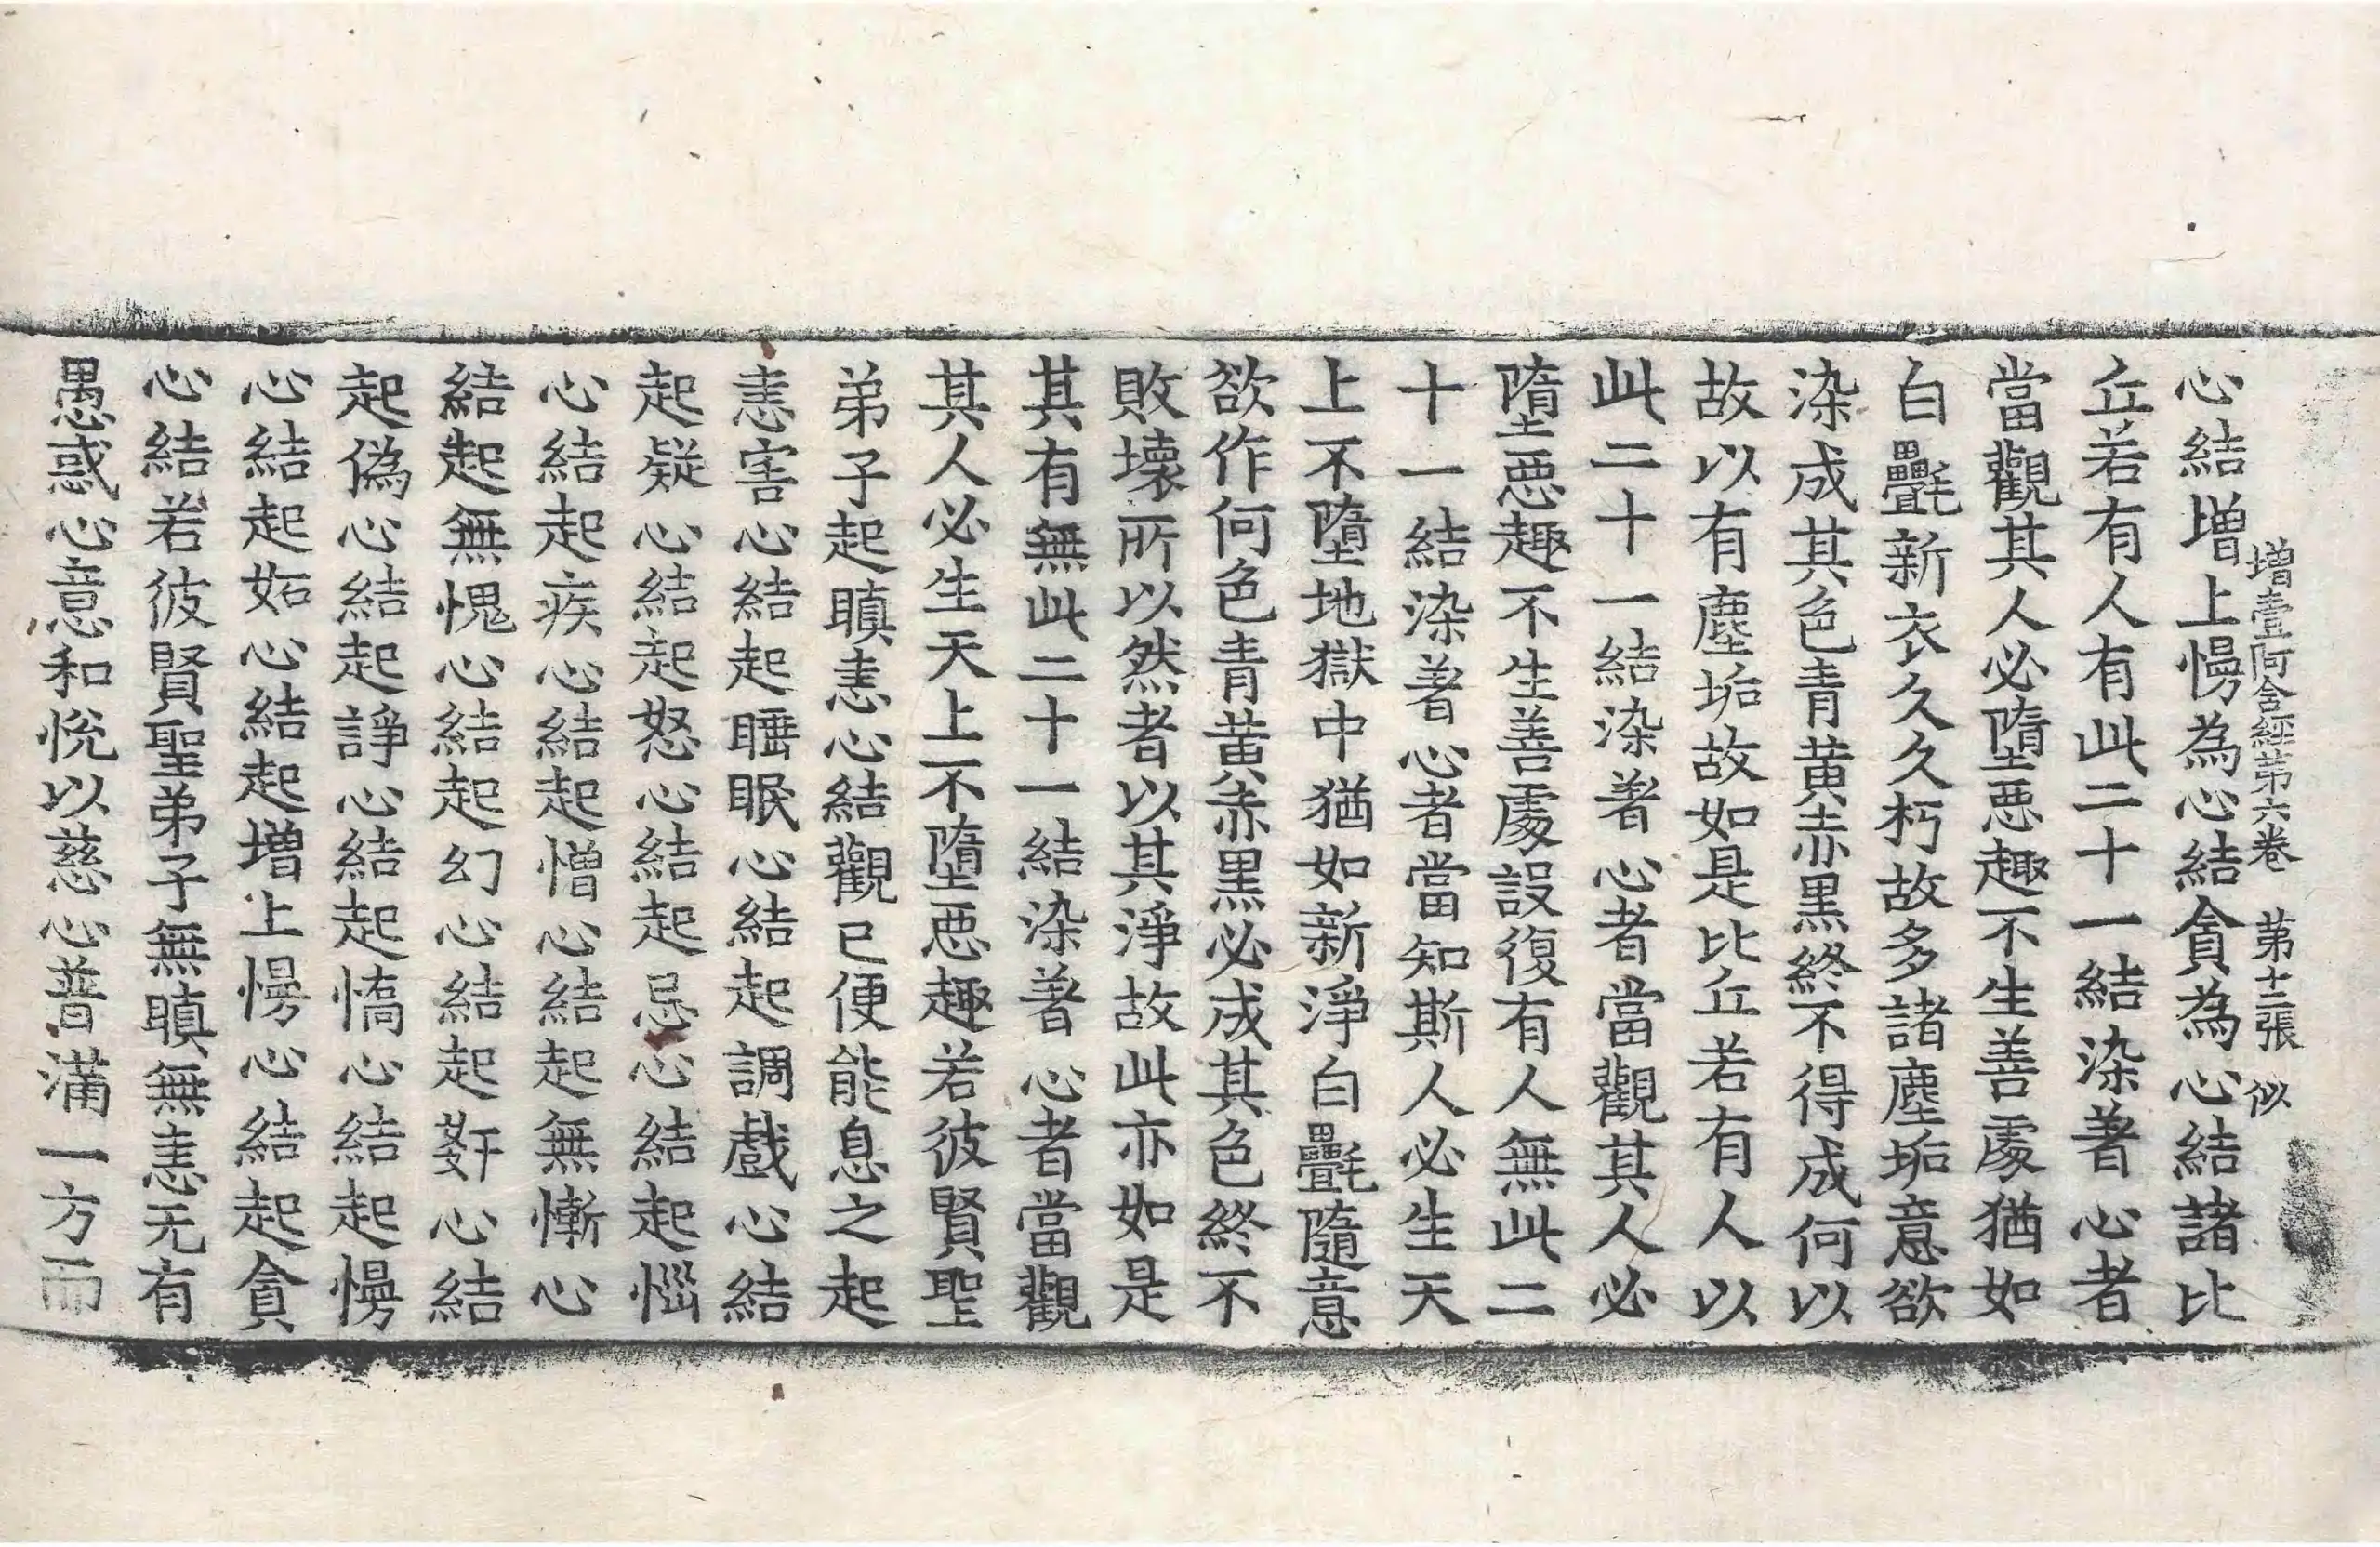 增壹阿含經第六卷 第十二張 似
心結增上慢為心結貪為心結諸比
丘若有人有此二十一結染著心者
當觀其人必墮惡趣不生善處猶如
白㲲新衣久久朽故多諸塵垢意欲
染成其色青黃赤黑終不得成何以
故以有塵垢故如是比丘若有人以
此二十一結染著心者當觀其人必
墮惡趣不生善處設復有人無此二
十一結染著心者當知斯人必生天
上不墮地獄中猶如新淨白㲲隨意
欲作何色青黃赤黑必成其色終不
敗壞所以然者以其淨故此亦如是
其有無此二十一結染著心者當觀
其人必生天上不墮惡趣若彼賢聖
弟子起瞋恚心結觀已便能息之起
恚害心結起睡眠心結起調戲心結
起疑心結起怒心結起忌心結起惱
心結起疾心結起憎心結起無慚心
結起無愧心結起幻心結起姧心結
起偽心結起諍心結起憍心結起慢
心結起妬心結起增上慢心結起貪
心結若彼賢聖弟子無瞋無恚无有
愚惑心意和悅以慈心普滿一方而